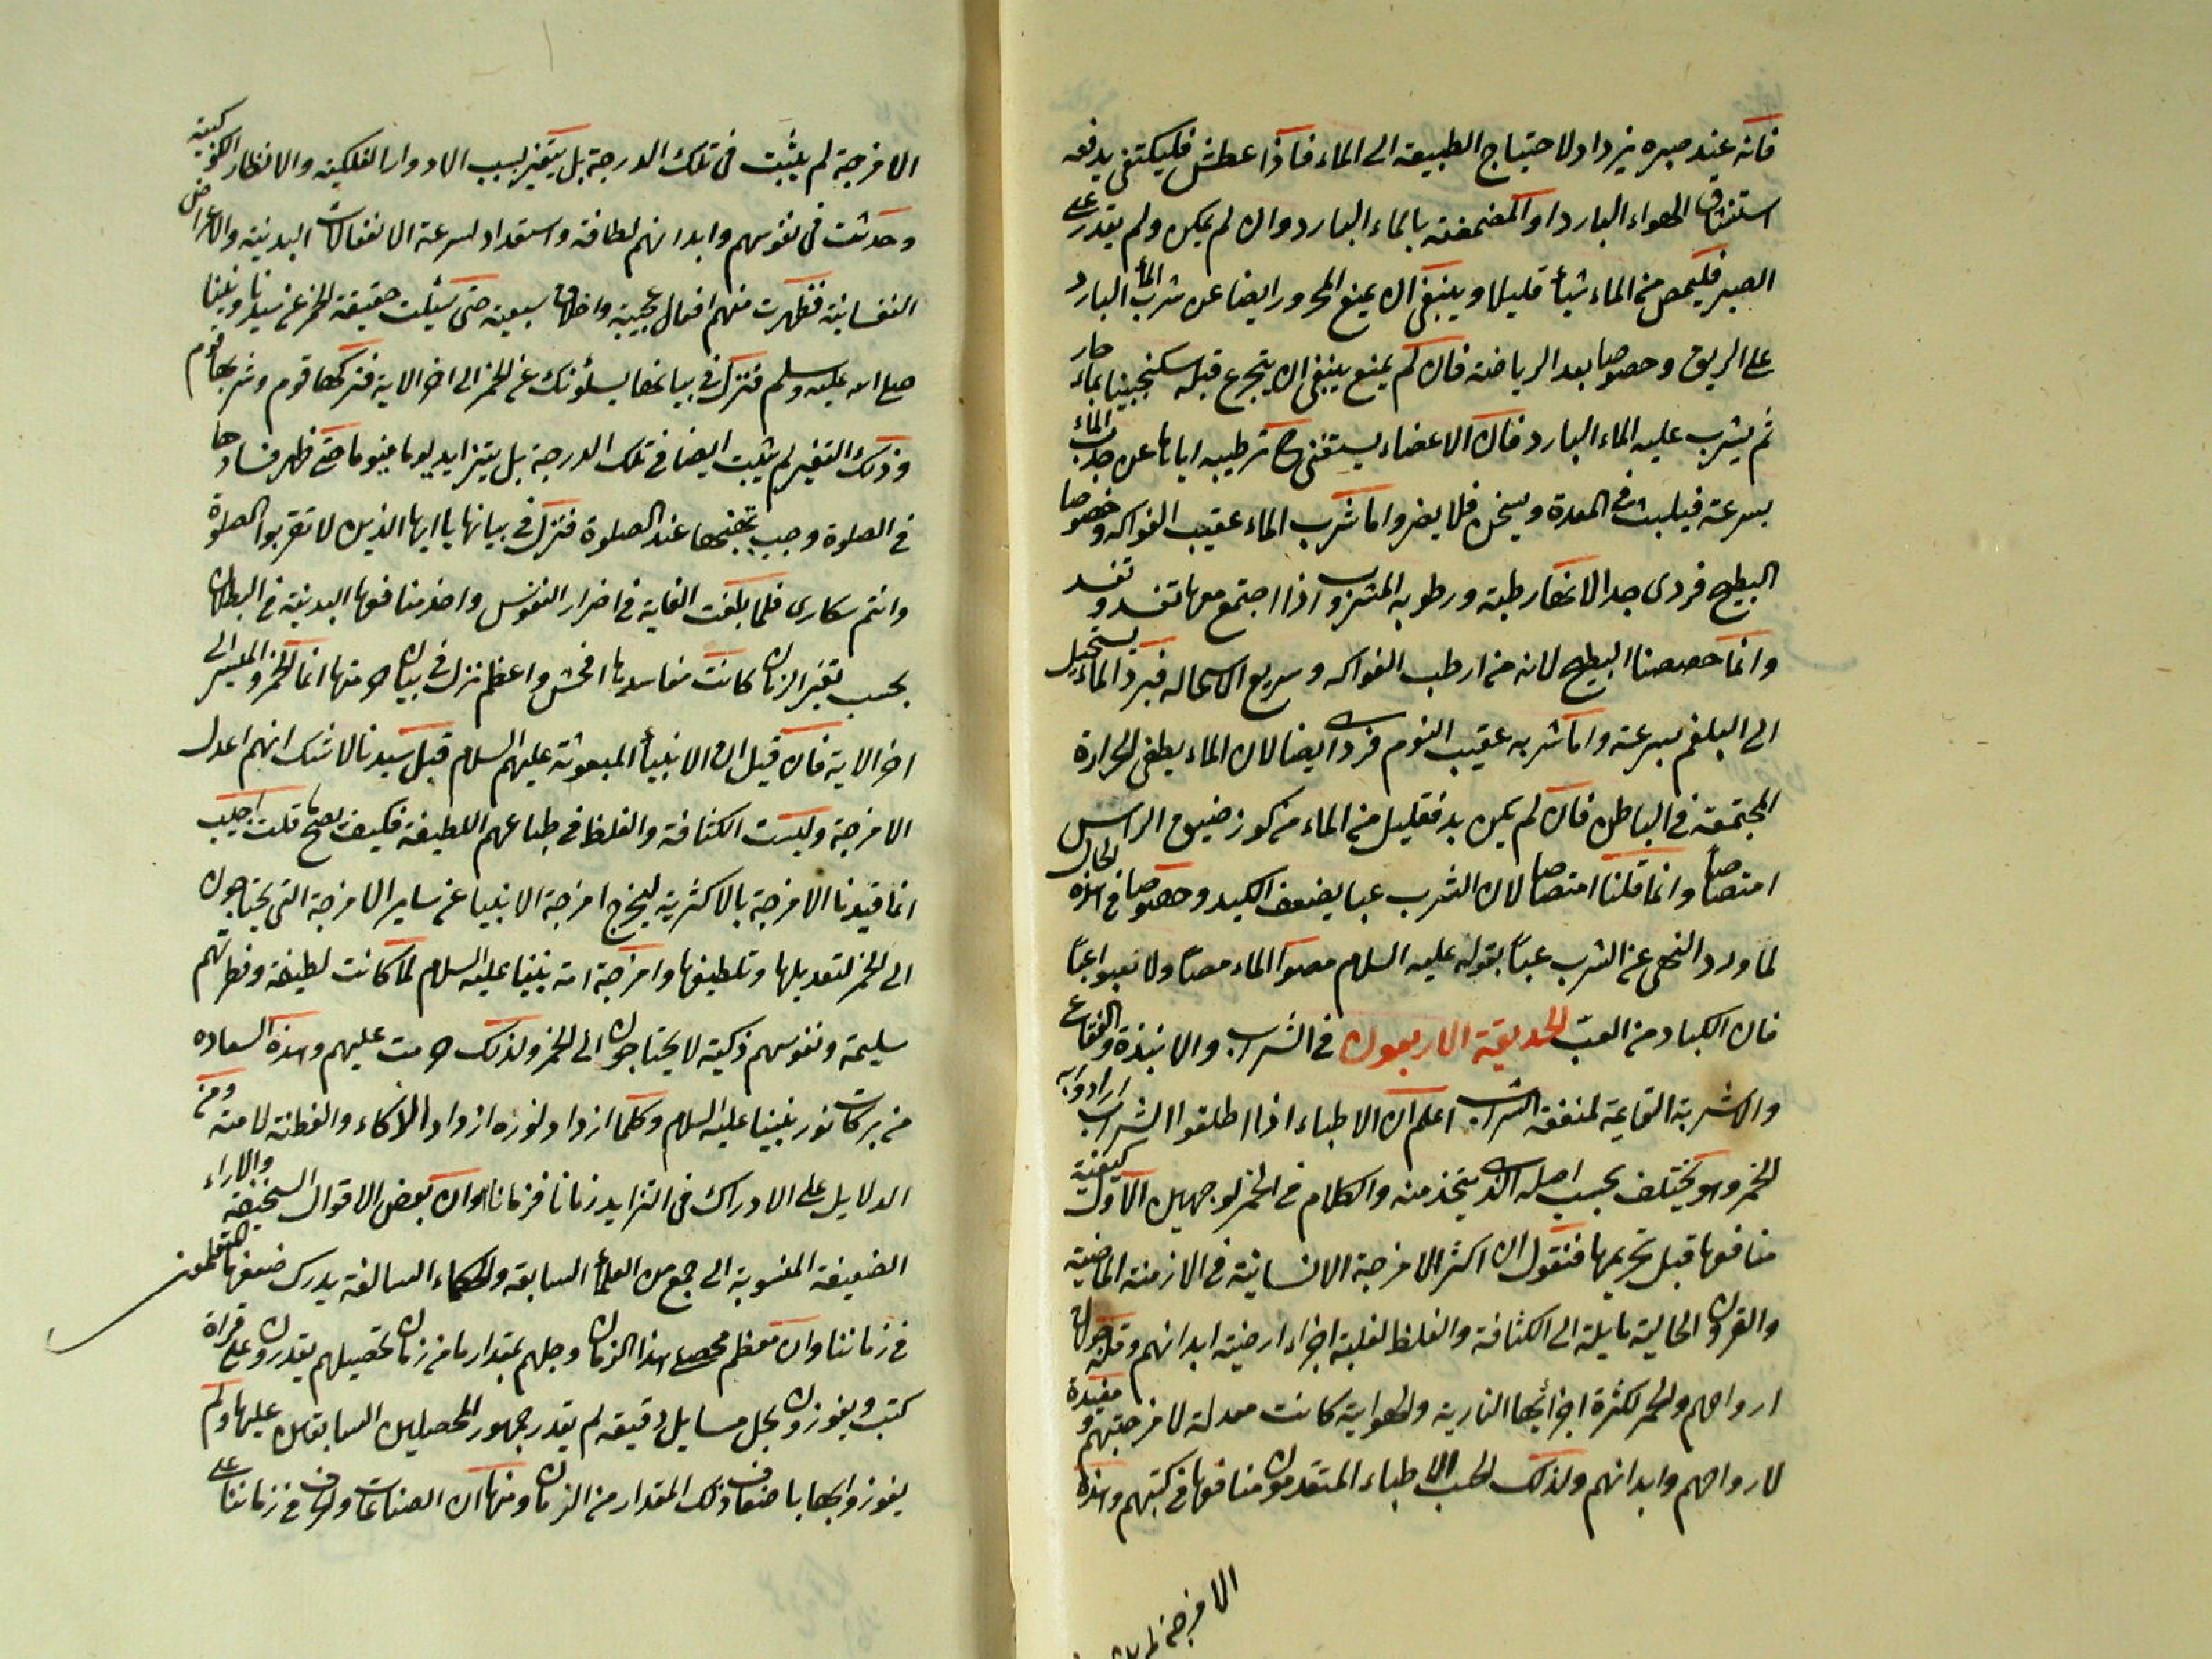 فانه عند صبره يزداد لاحتياج الطبيعة الى الماء فاذا عطش فليكتفى بدفعه
استنشاق الهواء البارد او المضمضة بالماء البارد وان لم يكن ولم يقدر على
الصبر فليمص من الماء شيأ قليلا وينبغى ان يمنع المحرور ايضا عن شرب الماء البارد
على الريق وخصوصا بعد الرياضة فان لم يمنع ينبغى ان يتجرع قبله سكنجبينا بماء حار
ثم يشرب عليه الماء البارد فان الاعضاء يستغنى ح ترطيبه اياها عن جذب الماء
بسرعة فيلبث فى المعدة ويسخن فلا يضر واما شرب الماء عقيب الفواكه وخصوصا
البطيخ فردى جدا لانها رطبة ورطوبه المشروب اذا اجتمع معها تفسد و تفسد
وانما خصصنا البطيخ لانه من ارطب الفواكه وسريع الاستحاله فبرد الماء يستحيل
الى البلغم بسرعة واما شربه عقيب النوم فردى ايضا لان الماء يطفى الحرارة
المجتمعة فى الباطن فان لم يكن بد فقليل من الماء من كوز ضيق الراس
امتصاصا وانما قلنا امتصاصا لان الشرب عبا يضعف الكبد وخصوصا فى هذه الحال
لما ورد النهى عن الشرب عبا بقوله عليه السلام مصوا الماء مصا ولا تعبوا عبا
فان الكباد من العب الحديقة الاربعون فى الشراب والانبذة والفقاع
والاشربة القايمة لمنفعة الشراب اعلم ان الاطباء اذا اطلقوا الشراب ارادوا به
الخمر وهو يختلف بحسب اصله الذى يتخذ منه والكلام فى الخمر لوجهين الاول كيفية
منافعها قبل تحريمها فنقول ان اكثر الامزجة الانسانية فى الازمنة الماضية
والقرون الخالية مايلة الى الكثافة والغلظ لغلبة اجزاء ارضية ابدانهم وقلة جولان
ارواحهم والخمر لكثرة اجزائها النارية والهوائية كانت معدلة لامزجتهم و مفيدة
لارواحهم وابدانهم ولذلك كتب الاطباء المتقدمون منافعها فى كتبهم وهذه
الامزجة لم يثبت
الامزجة لم يثبت فى تلك الدرجة بل يتغير بسبب الادوار الفلكية والانظار الكوكبية
وحدثت فى نفوسهم وابدانهم لطافة واستعداد لسرعة الانفعالات البدنية والاعراض
النفسانية فظهرت منهم افعال عجيبة واخلاق سبعية حتى سئلت حقيقة الخمر عن سيدنا ونبينا
صلى الله عليه وسلم فنزل فى بيانها يسئلونك عن الخمر الى اخر الاية فتركها قوم وشربها قوم
وذلك التغير لم يثبت ايضا فى تلك الدرجة بل يتزايد يوما فيوما حتى ظهر فسادها
فى الصلوة وجب تجنبها عند الصلوة فنزل فى بيانها يا ايها الذين لا تقربوا الصلوة
وانتم سكارى فلما بلغت الغاية فى اضرار النفوس واخذ منافعها البدنية فى البطلان
بحسب تغير الزمان كانت مفاسدها افحش واعظم نزل فى بيان حرمتها انما الخمر والميسر الى
اخر الاية فان قيل ان الانبيأ المبعوثة عليهم السلام قبل سيدنا لا شك انهم اعدل
الامزجة وليست الكثافة والغلظ فى طباعهم اللطيفة فكيف يصح ما قلت اجيب
انما قيدنا الامزجة بالاكثرية ليخرج امزجة الانبيا عن ساير الامزجة التى يحتاجون
الى الخمر لتعديلها وتلطيفها وامزجة امة نبينا عليه السلام لما كانت لطيفة وفطرتهم
سليمة ونفوسهم ذكية لا يحتاجون الى الخمر ولذلك حرمت عليهم وهذه السعاده
من بركات نور نبينا عليه السلام وكلما ازداد نوره ازداد الذكاء والفطنة لامته ومن
الدلايل على الادراك فى التزايد زمانا فزمانا وان بعض الاقوال السخيفة والاراء
الضعيفة المنسوبة الى جمع من العلمأ السابقة والحكماء السالفة يدرك ضعفها المتعلمون
فى زماننا وان معظم محصلى هذا الزمان وجلهم بمقدار ما من زمان تحصيلهم يقدرون على قراة
كتب ويفوزون بحل مسايل دقيقة لم يقدر جمهور المحصلين السابقين عليها ولم
يفوزوا بها باضعاف ذلك المقدار من الزمان ومنها ان الصناعات والحرف فى زماننا على